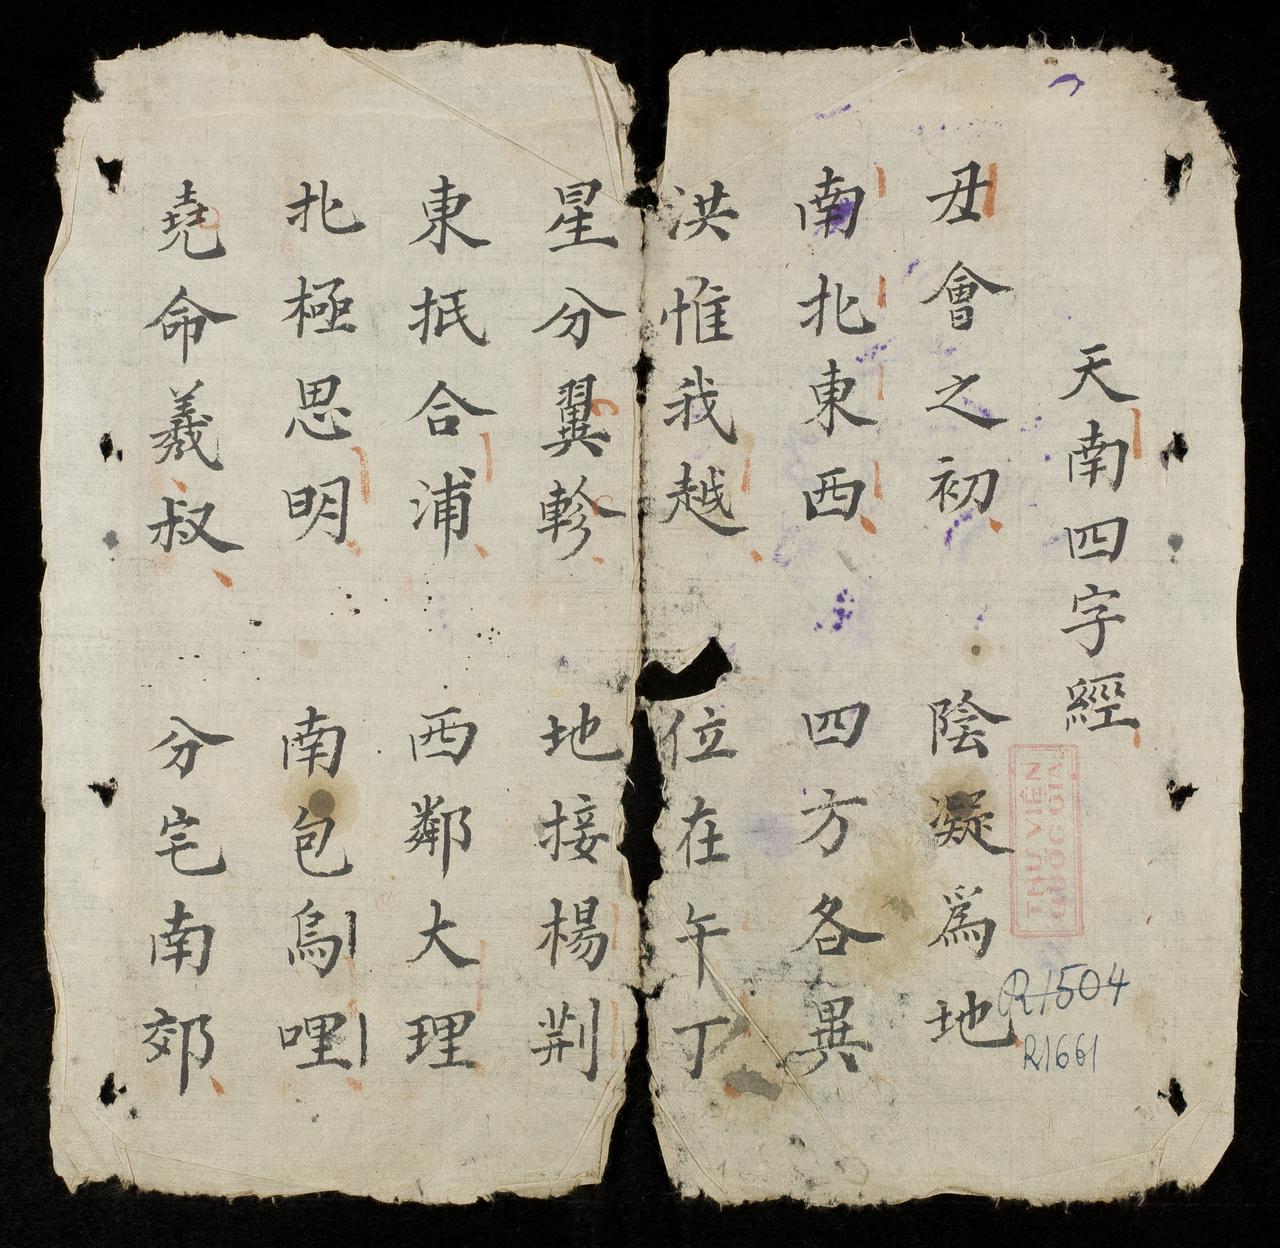 天南四字經
丑會之初 陰凝爲地
南北東西 四方各異
洪惟我越 位在午丁
星分翼軫 地接楊荆
東抵合浦 西鄰大理
北極思明 南包烏哩
堯命羲叔 分宅南郊
THƯ VIỆN
QUỐC GIA
R1504
R1661